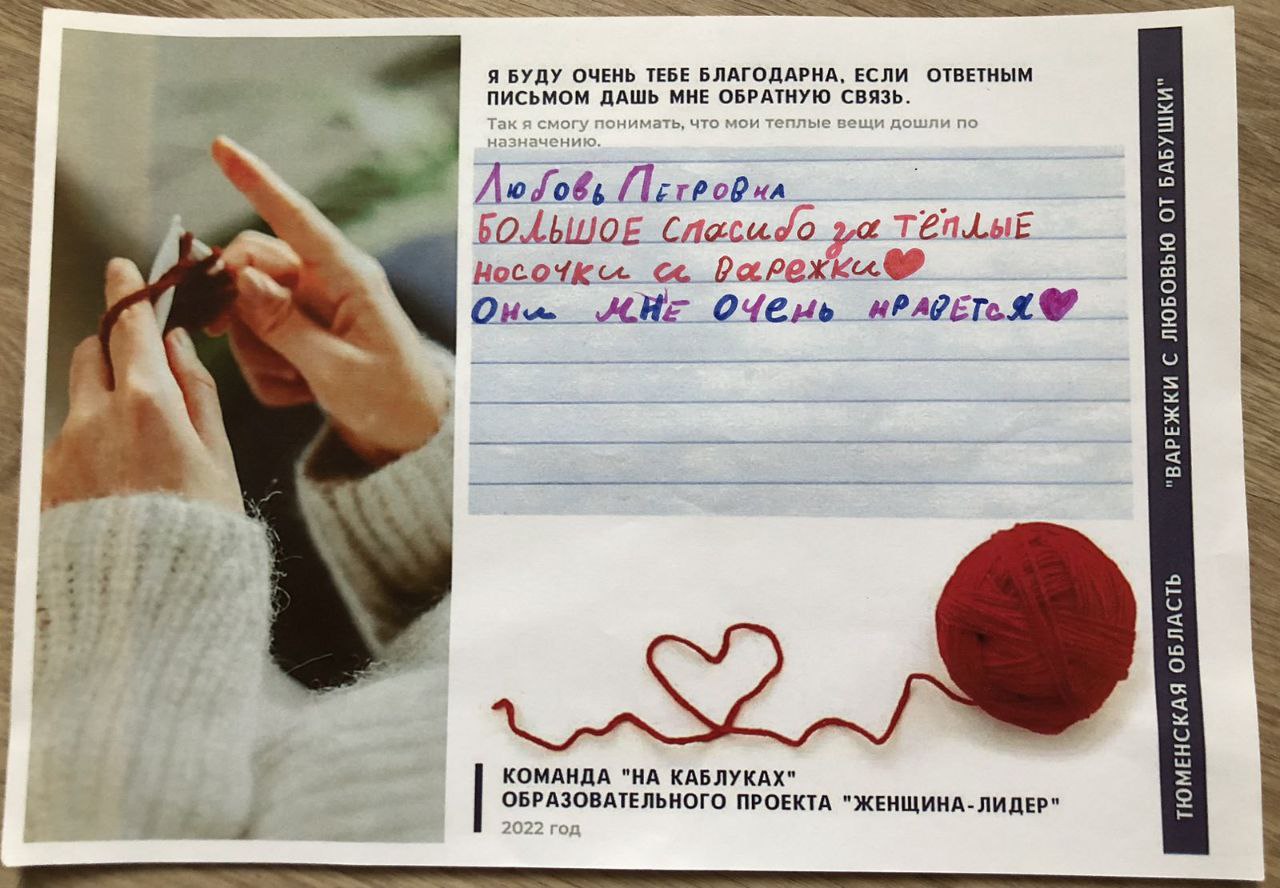 Я БУДУ ОЧЕНЬ ТЕБЕ БЛАГОДАРНА, ЕСЛИ ОТВЕТНЫМ
ПИСЬМОМ ДАШЬ МНЕ ОБРАТНУЮ СВЯЗЬ.
Так я смогу понимать, что мои теплые вещи дошли по
назначению.
Любовь Петровна
БОЛЬШОЕ спасибо за тёплые
носочки и варежки
Они мне очень нравется
КОМАНДА "НА КАБЛУКАХ"
ОБРАЗОВАТЕЛЬНОГО ПРОЕКТА "ЖЕНЩИНА-ЛИДЕР"
2022 год
ТЮМЕНСКАЯ ОБЛАСТЬ "ВАРЕЖКИ С ЛЮБОВЬЮ ОТ БАБУШКИ"